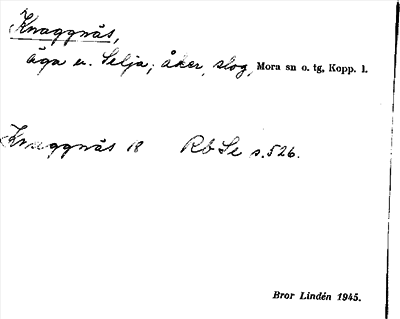 Knaggnäs,
äga u. Selja; åker, slog, Mora sn o. tg, Kopp. l.
Knaggnäs 18 Rb Se s. 526.
Bror Lindén 1945.